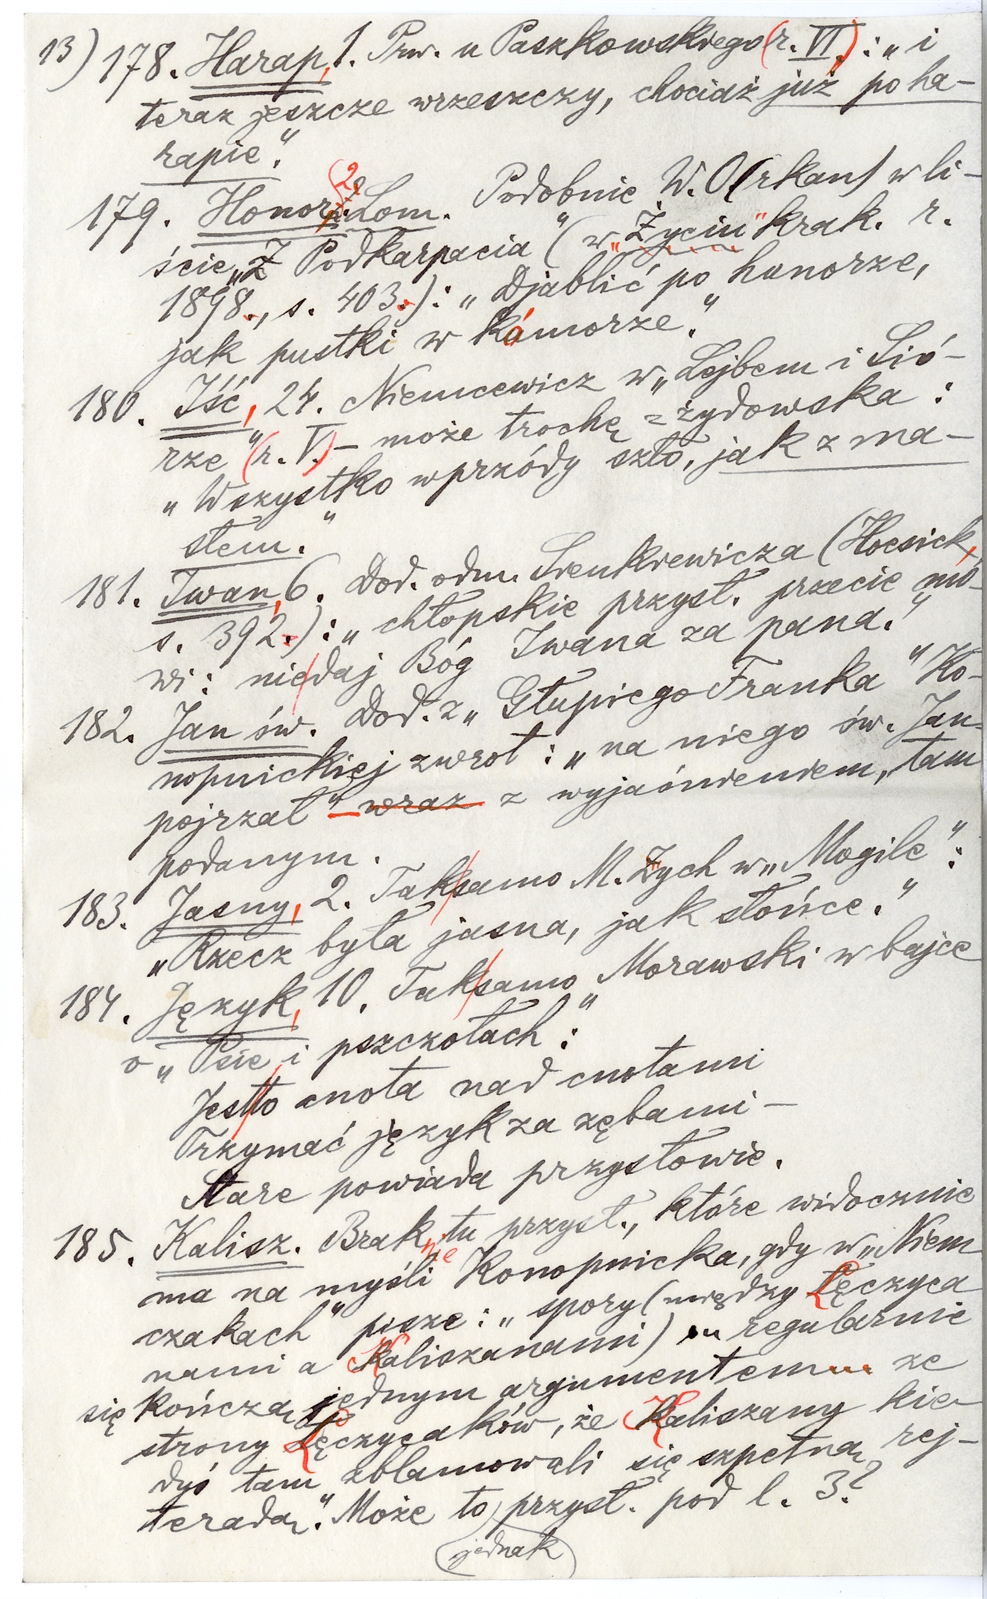 13) 178. Harap, 1. Prw. u Paszkowskiego (r. VI.): „i
teraz jeszcze wrzeszczy, chociaż już po ha-
rapie".
179. Honor, 2. Lom. Podobnie W. O(rkan) w li-
ście „Z Podkarpacia" (w „Życiu" krak. r.
1898., s. 403.): „Djablić po honorze,
jak pustki w kómorze."
180. Iść, 24. Niemcewicz w „Lejbem i Sió-
rze" (r. V.) – może trochę z żydowska:
„Wszystko wprzódy szło, jak z ma-
słem."
181. Iwan, 6. Dod. odm. Sienkiewicza (Hoesick,
s. 392.): „chłopskie przysł. przecie mó-
wi: nie daj Bóg Iwana za pana."
182. Jan św. Dod. z „Głupiego Franka" Ko-
nopnickiej zwrot: „na niego św. Jan
pojrzał" wraz z wyjaśnieniem, tam
podanym.
183. Jasny, 2. Tak samo M. Zych w „Mogile":
„Rzecz była jasna, jak słońce."
184. Język, 10. Tak samo Morawski w bajce
o „Psie i pszczołach:"
Jest to cnota nad cnotami
Trzymać język za zębami –
Stare powiada przysłowie.
185. Kalisz. Brak tu przysł., które widocznie
ma na myśli Konopnicka, gdy w „Niem
czakach" pisze: „spory (między Łęczyca
nami a Kaliszanami) regularnie
się kończą jednym argumentem... ze
strony Łęczycaków, że Kaliszany kie-
dyś tam zblamowali się szpetną rej-
teradą". Może to przysł. pod l. 3?
jednak